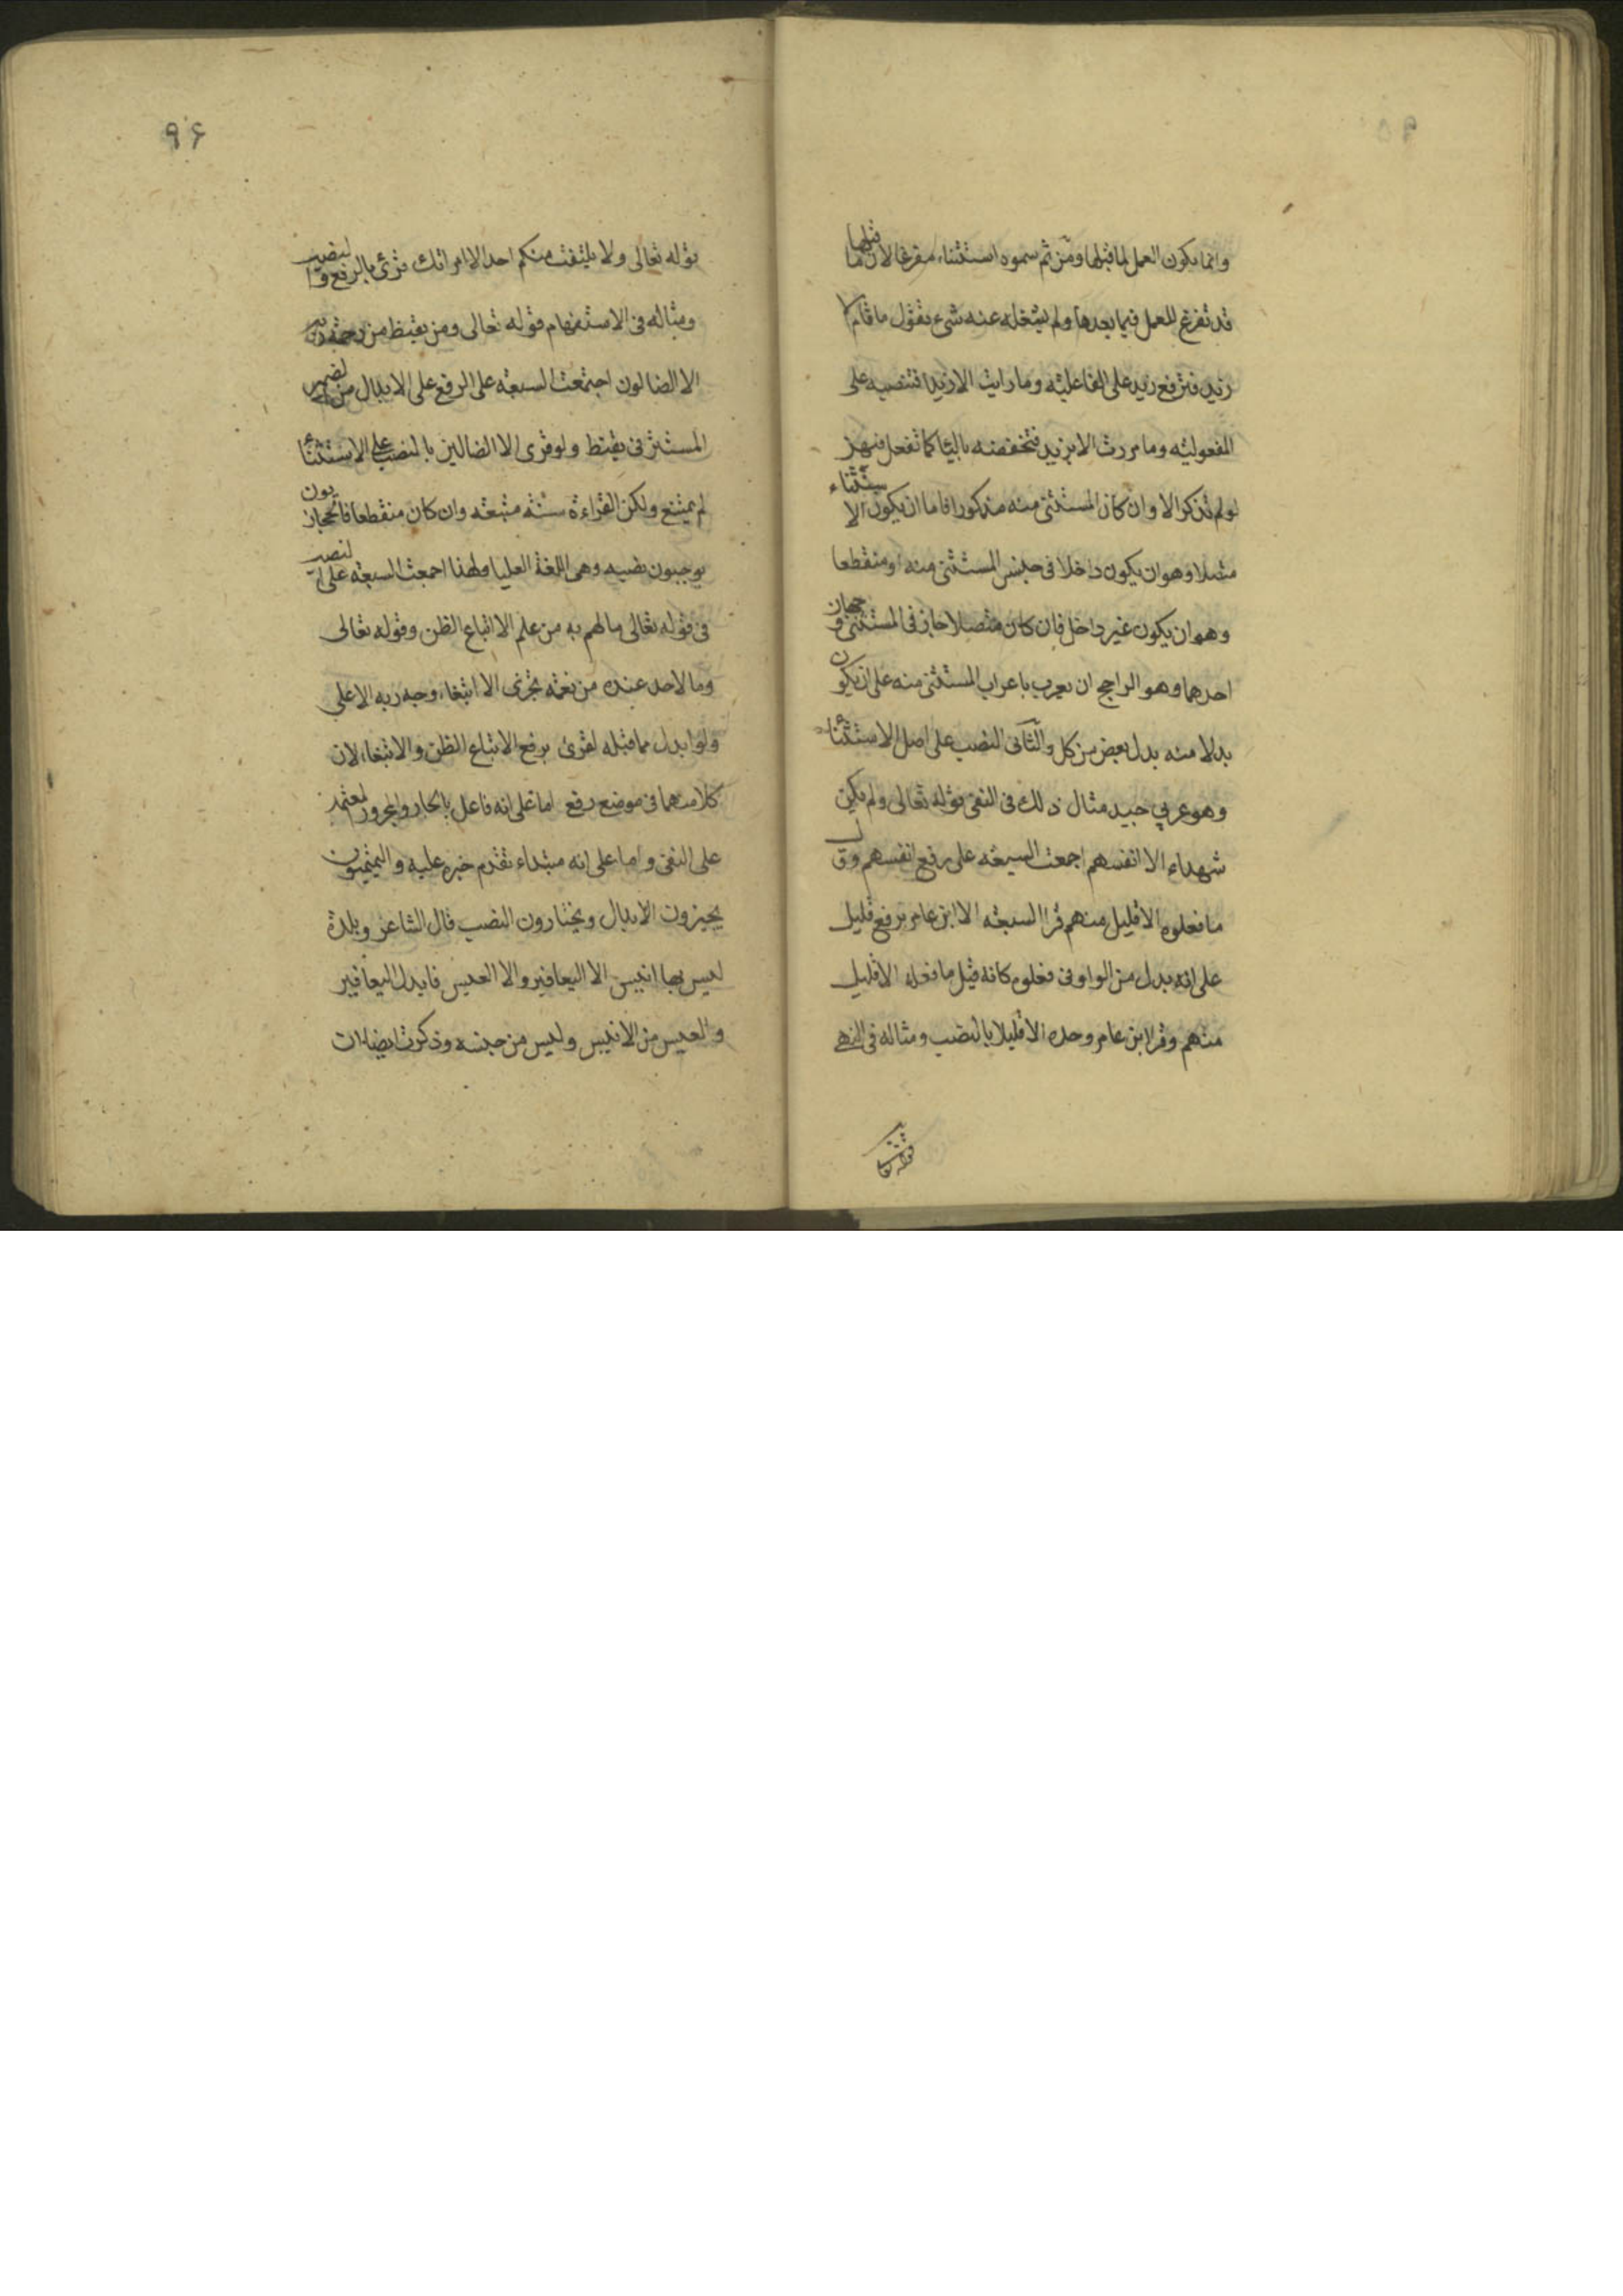 وانما يكون العمل لما قبلها ومن ثم سموه استثناء مفرغا لان ما قبلها
قد تفرغ للعمل فيما بعدها ولم يشغله عنه شيء يقول ما قام الا
زيد فترفع زيد على الفاعلية وما رايت الا زيدا فتنصبه على
المفعولية وما مررت الا بزيد فتخفضه بالباء كما تفعل فيهن
لو لم تذكر الا وان كان المستثنى منه مذكورا فاما ان يكون الاستثناء
متصلا وهو ان يكون داخلا في جنس المستثنى منه او منقطعا
وهو ان يكون غير داخل فان كان متصلا جاز في المستثنى وجهان
احدهما وهو الراجح ان يعرب باعراب المستثنى منه على ان يكون
بدلا منه بدل بعض من كل والثاني النصب على اصل الاستثناء
وهو عربي جيد مثال ذلك في النفي قوله تعالى ولم يكن
شهداء الا انفسهم اجمعت السبعه على رفع انفسهم وقال
ما فعلوه الا قليل منهم قرا السبعه الا ابن عامر برفع قليل
على انه بدل من الواو في فعلوه كانه قيل ما فعله الا قليل
منهم وقرا ابن عامر وحده الا قليلا بالنصب ومثاله في النهي
٩٦
قوله تعالى ولا يلتفت منكم احد الا امراتك قرئ بالرفع والنصب
ومثاله في الاستفهام قوله تعالى ومن يقنط من رحمة ربه
الا الضالون اجتمعت السبعه على الرفع على الابدال من الضمير
المستتر في يقنط ولو قرى الا الضالين بالنصب على الاستثناء
لم يمتنع ولكن القراءة سنة متبعه وان كان منقطعا فالحجازيون
يوجبون نصبه وهي اللغة العليا ولهذا اجمعت السبعه على النصب
في قوله تعالى ما لهم به من علم الا اتباع الظن وقوله تعالى
وما لاحد عنده من نعمه تجزى الا ابتغاء وجه ربه الاعلى
ولو ابدل مما قبله لقرئ برفع الا اتباع الظن والا ابتغاء لان
كلا منهما في موضع رفع اما على انه فاعل بالجار والمجرور المعتمد
على النفي واما على انه مبتداء تقدم خبره عليه والتميميون
يجيزون الابدال ويختارون النصب قال الشاعر وبلدة
ليس بها انيس الا اليعافير والا العيس فابدل اليعافير
والعيس من الانيس وليس من جنسه وذكرت ايضا ان